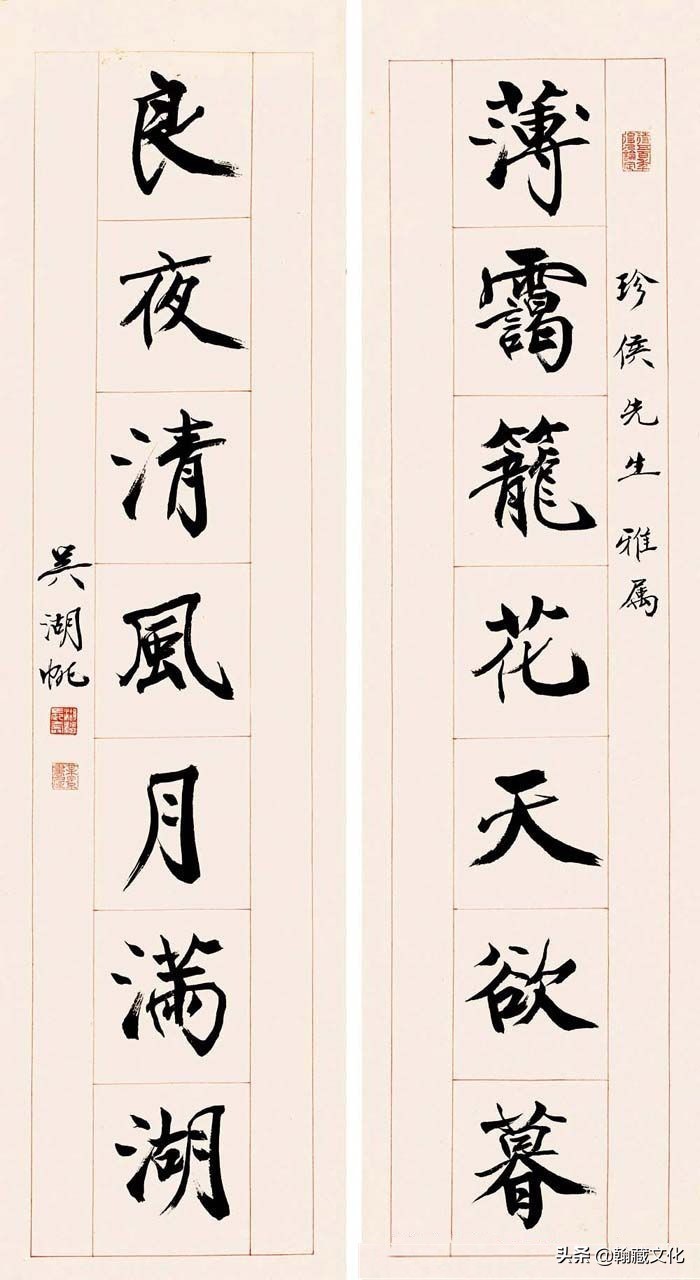 珍侯先生雅属
薄靄籠花天欲暮
良夜清風月滿湖
吳湖帆
头条 @翰藏文化